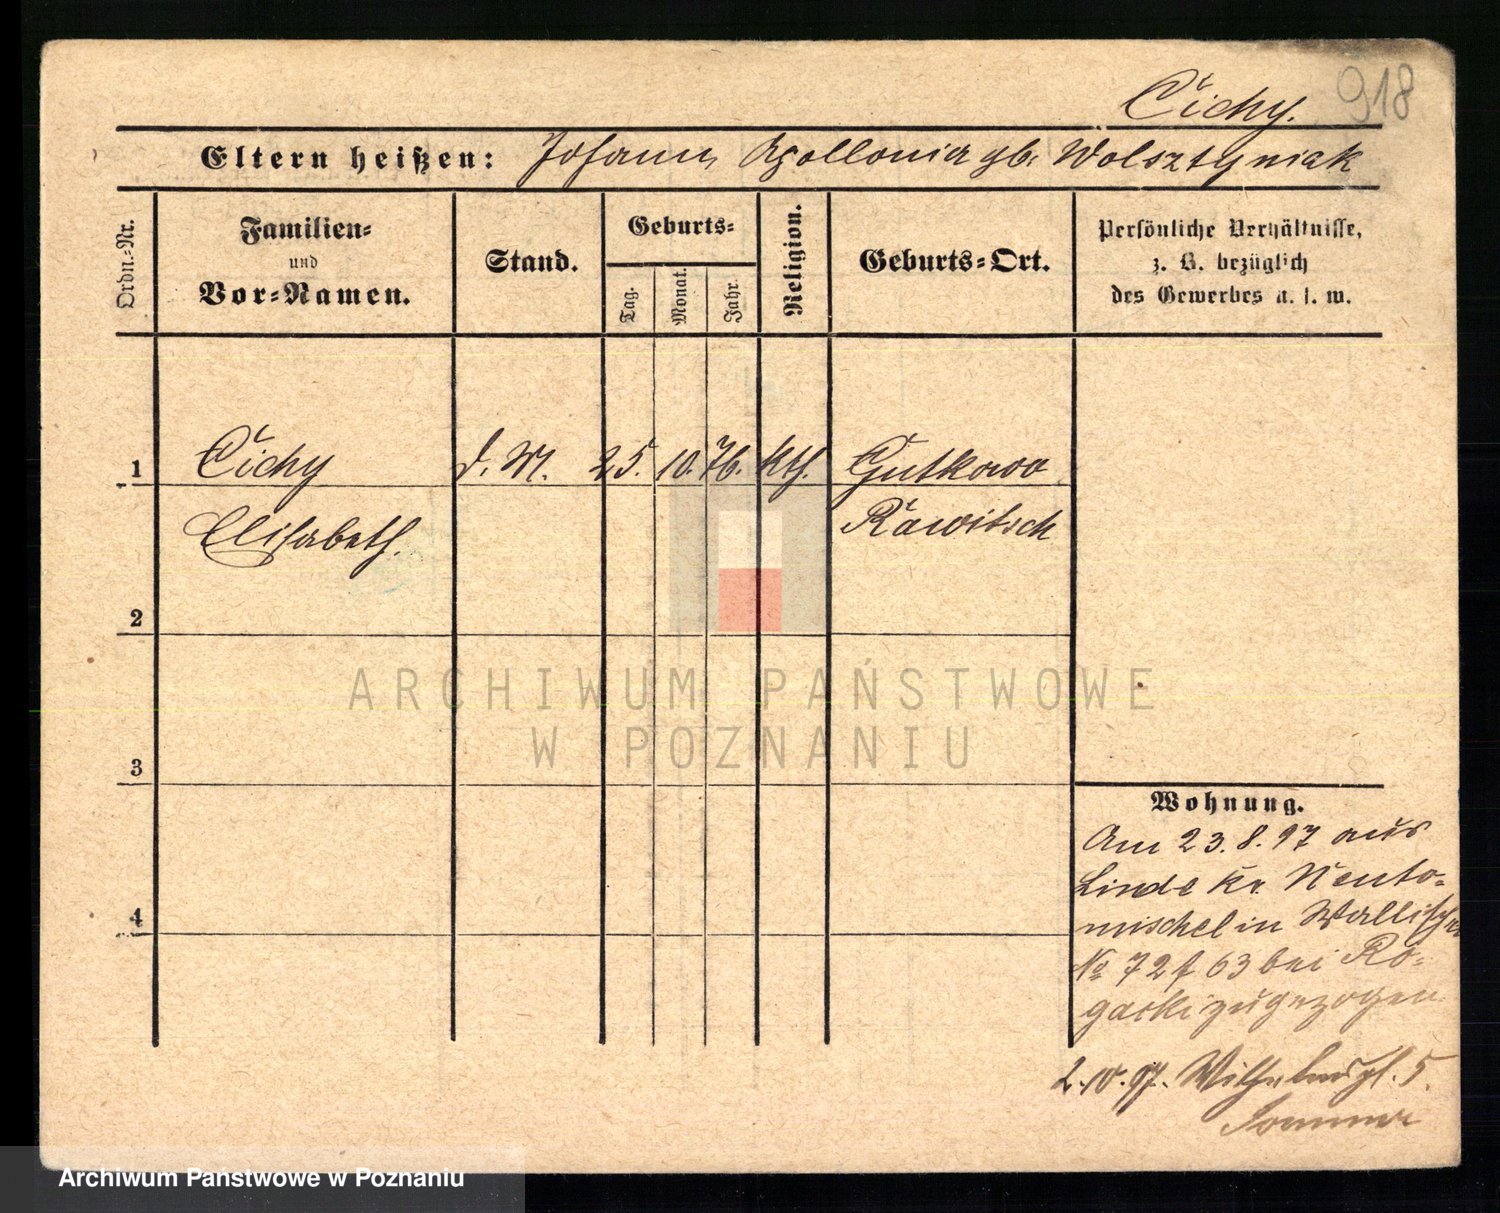 Cichy. 918
Eltern heißen: Johann, Apollonia gb. Wolsztyniak
Ordn.-Nr.
Familien-
und
Vor-Namen.
Stand.
Geburts-
Tag.
Monat.
Jahr.
Religion.
Geburts-Ort.
Persönliche Verhältnisse,
z. B. bezüglich
des Gewerbes u. s. w.
1 Cichy d. M. 25. 10. 76. kth. Gutkowo
Elisabeth. Rawitsch
2
ARCHIWUM PAŃSTWOWE
W POZNANIU
3
4
Wohnung.
Am 23.8.97 aus
Linde Kr Neuto-
mischel in Wallischei
No 72 f 63 bei Ro-
gacki zugezogen
2.10.97. Wilhelmspl. 5.
Sommer
Archiwum Państwowe w Poznaniu